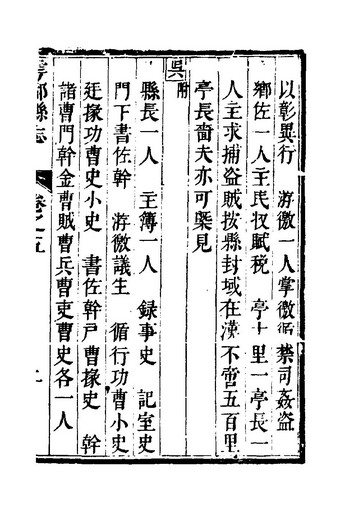 以彰異行　游徼一人掌徼循禁司姦盜
鄉佐一人主民收賦稅　亭十里一亭長一
人主求捕盜賊按縣封域在漢不啻五百里
亭長嗇夫亦可槩見
吳附
縣長一人　主簿一人　録事史　記室史
門下書佐幹　游徼議生　循行功曹小史
廷掾功曹史小史　書佐幹戶曹掾史　幹
諸曹門幹金曹賊曹兵曹吏曹史各一人
雩都縣志　卷之五　九